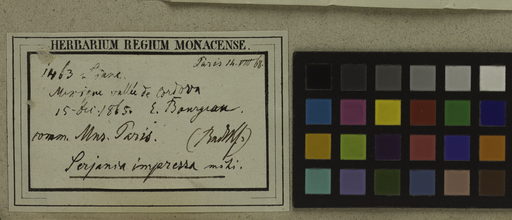 HERBARIUM REGIUM MONACENSE.
Paris 14. VIII 68.
1463 Liane.
Mexique vallée de Cordova
15 Dec. 1865. E. Bourgeau.
comm. Mus. Paris. (Radlk.)
Serjania impressa mihi.